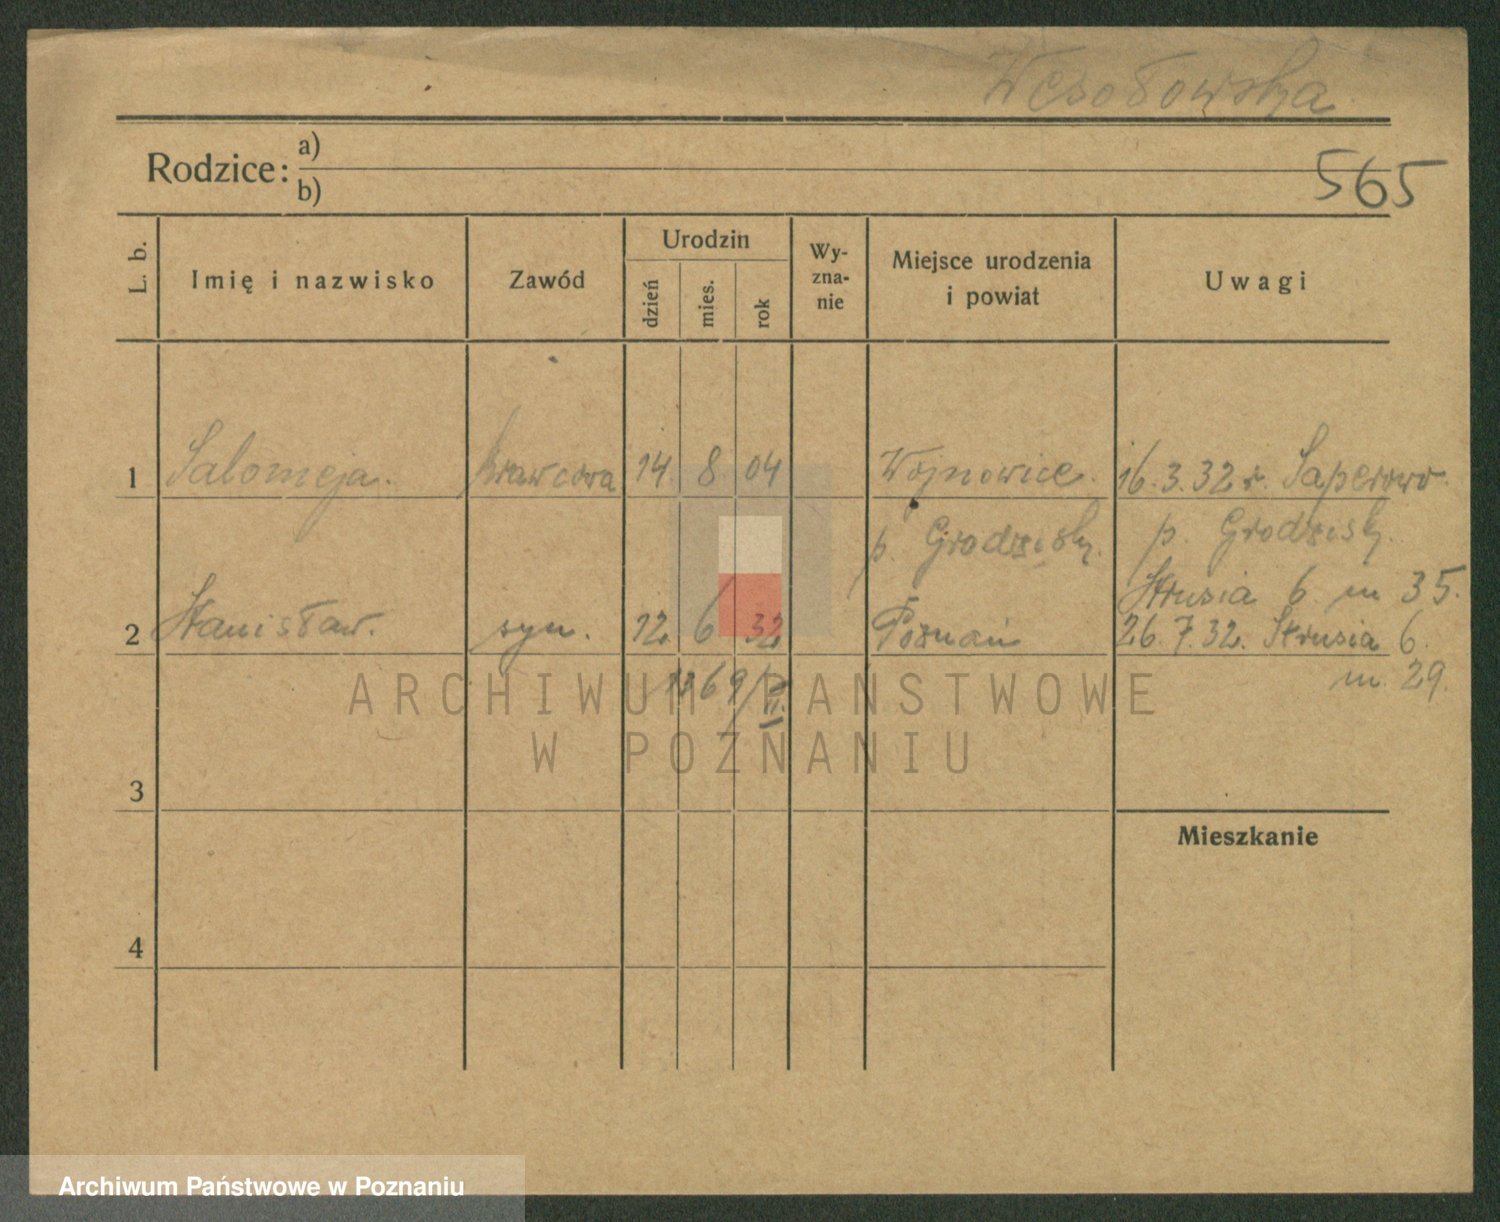 Wesołowska
Rodzice: a)
b)
565
L. b.
Imię i nazwisko
Zawód
Urodzin
dzień
mies.
rok
Wy-
zna-
nie
Miejsce urodzenia
i powiat
Uwagi
1 Salomeja. krawcowa 14 8 04 Wojnowice. 16.3.32 r. Saperowo.
p. Grodzisk. p. Grodzisk.
Strusia 6 m 35.
2 Stanisław. syn. 12 6 32 Poznań 26.7.32. Strusia 6.
m. 29.
ARCHIWUM PAŃSTWOWE
W POZNANIU
3
Mieszkanie
4
Archiwum Państwowe w Poznaniu